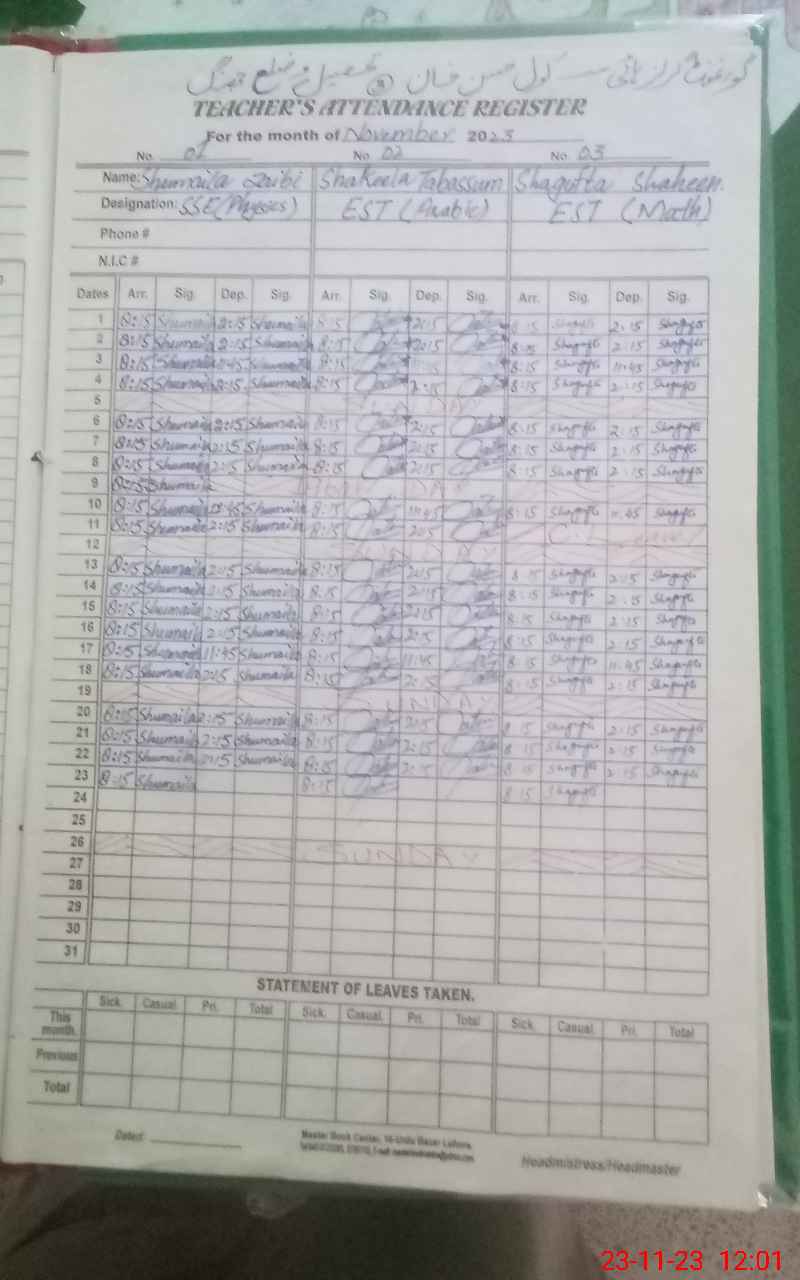 گورنمنٹ گرلز ہائی سکول حسن خان تحصیل و ضلع جھنگ
TEACHER'S ATTENDANCE REGISTER
For the month of November 2023
No. 01 No. 02 No. 03
Name: Shumaila Shakeela Tabassum Shagufta Shaheen
Designation: SSE (Physics) EST (Arabic) EST (Math)
Phone #
N.I.C #
Dates Arr. Sig. Dep. Sig. Arr. Sig. Dep. Sig. Arr. Sig. Dep. Sig.
1 8:15 Shumaila 2:15 Shumaila 8:15 2:15 8:15 Shagufta 2:15 Shagufta
2 8:15 Shumaila 2:15 Shumaila 8:15 2:15 8:15 Shagufta 2:15 Shagufta
3 8:15 Shumaila 11:45 Shumaila 8:15 8:15 Shagufta 11:45 Shagufta
4 8:15 Shumaila 2:15 Shumaila 8:15 2:15 8:15 Shagufta 2:15 Shagufta
5
6 8:15 Shumaila 2:15 Shumaila 8:15 2:15 8:15 Shagufta 2:15 Shagufta
7 8:15 Shumaila 2:15 Shumaila 8:15 2:15 8:15 Shagufta 2:15 Shagufta
8 8:15 Shumaila 2:15 Shumaila 8:15 2:15 8:15 Shagufta 2:15 Shagufta
9 8:15 Shumaila
10 8:15 Shumaila 11:45 Shumaila 8:15 11:45 8:15 Shagufta 11:45 Shagufta
11 8:15 Shumaila 2:15 Shumaila 8:15 2:15
12 SUNDAY
13 8:15 Shumaila 2:15 Shumaila 8:15 2:15 8:15 Shagufta 2:15 Shagufta
14 8:15 Shumaila 2:15 Shumaila 8:15 2:15 8:15 Shagufta 2:15 Shagufta
15 8:15 Shumaila 2:15 Shumaila 8:15 2:15 8:15 Shagufta 2:15 Shagufta
16 8:15 Shumaila 2:15 Shumaila 8:15 2:15 8:15 Shagufta 2:15 Shagufta
17 8:15 Shumaila 11:45 Shumaila 8:15 11:45 8:15 Shagufta 11:45 Shagufta
18 8:15 Shumaila 2:15 Shumaila 8:15 2:15 8:15 Shagufta 2:15 Shagufta
19 SUNDAY
20 8:15 Shumaila 2:15 Shumaila 8:15 2:15 8:15 Shagufta 2:15 Shagufta
21 8:15 Shumaila 2:15 Shumaila 8:15 2:15 8:15 Shagufta 2:15 Shagufta
22 8:15 Shumaila 2:15 Shumaila 8:15 2:15 8:15 Shagufta 2:15 Shagufta
23 8:15 Shumaila 8:15 8:15 Shagufta
24
25
26 SUNDAY
27
28
29
30
31
STATEMENT OF LEAVES TAKEN.
Sick. Casual. Pri. Total Sick. Casual. Pri. Total Sick. Casual. Pri. Total
This month.
Previous
Total
Dated:
Master Book Center, 16-Urdu Bazar Lahore.
Headmistress/Headmaster
23-11-23 12:01